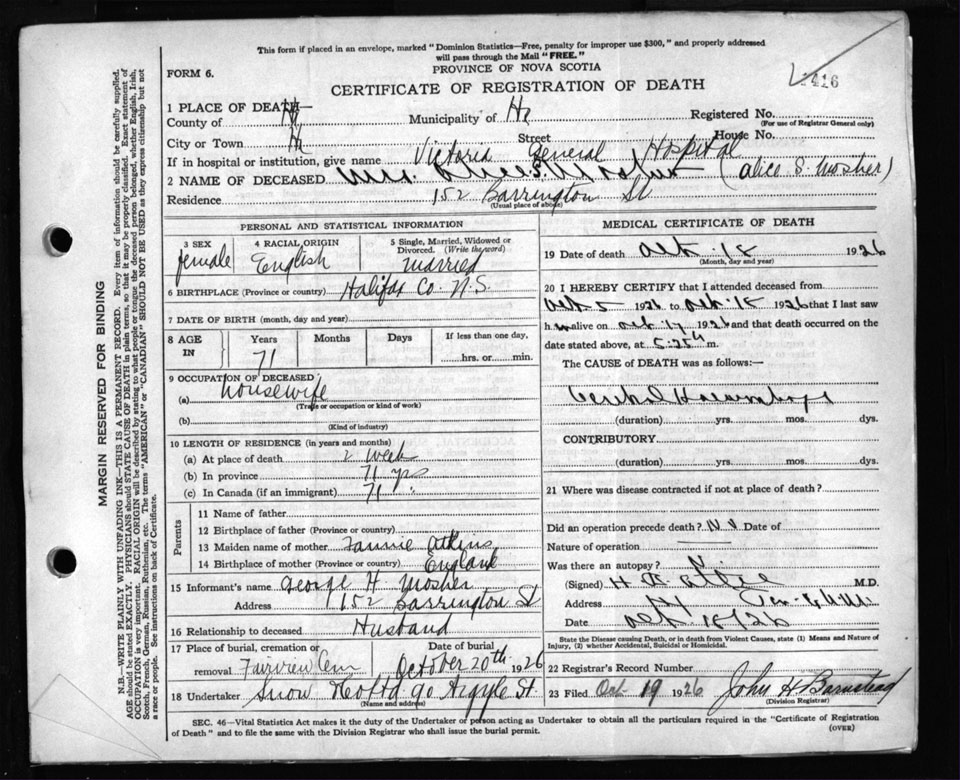 This form if placed in an envelope, marked "Dominion Statistics—Free, penalty for improper use $300," and properly addressed
will pass through the Mail "FREE."
PROVINCE OF NOVA SCOTIA
FORM 6.
CERTIFICATE OF REGISTRATION OF DEATH
416
1 PLACE OF DEATH—
County of Hx Municipality of Hx Registered No.
(For use of Registrar General only)
City or Town Hx Street House No.
If in hospital or institution, give name Victoria General Hospital
2 NAME OF DECEASED Mrs. Alice S. Mosher (Alice S. Mosher)
Residence 152 Barrington St
(Usual place of abode)
PERSONAL AND STATISTICAL INFORMATION
3 SEX female
4 RACIAL ORIGIN English
5 Single, Married, Widowed or Divorced. (Write the word) married
6 BIRTHPLACE (Province or country) Halifax Co. N.S.
7 DATE OF BIRTH (month, day and year)
8 AGE IN Years 71 Months Days If less than one day, hrs. or min.
9 OCCUPATION OF DECEASED
(a) housewife
(Trade or occupation or kind of work)
(b)
(Kind of industry)
10 LENGTH OF RESIDENCE (in years and months)
(a) At place of death 2 week
(b) In province 71 yrs
(c) In Canada (if an immigrant) 71 "
Parents
11 Name of father
12 Birthplace of father (Province or country)
13 Maiden name of mother Fannie Atkins
14 Birthplace of mother (Province or country) England
15 Informant's name George H Mosher
Address 152 Barrington St
16 Relationship to deceased Husband
17 Place of burial, cremation or removal Fairview Cem Date of burial October 20th 1926
18 Undertaker Snow 90 Argyle St.
(Name and address)
MEDICAL CERTIFICATE OF DEATH
19 Date of death Oct. 18 1926
(Month, day and year)
20 I HEREBY CERTIFY that I attended deceased from
Oct 5 1926 to Oct. 18 1926 that I last saw
h er alive on Oct. 17 1926 and that death occurred on the
date stated above, at 5.25 m.
The CAUSE OF DEATH was as follows:—
Cerebral Haemorrhage
(duration) yrs. mos. dys.
CONTRIBUTORY
(duration) yrs. mos. dys.
21 Where was disease contracted if not at place of death?
Did an operation precede death? No Date of
Nature of operation
Was there an autopsy?
(Signed) H M.D.
Address
Date Oct. 18/26
State the Disease causing Death, or in death from Violent Causes, state (1) Means and Nature of
Injury, (2) whether Accidental, Suicidal or Homicidal.
22 Registrar's Record Number
23 Filed Oct 19 1926 John H Barnstead
(Division Registrar)
SEC. 46—Vital Statistics Act makes it the duty of the Undertaker or person acting as Undertaker to obtain all the particulars required in the "Certificate of Registration
of Death" and to file the same with the Division Registrar who shall issue the burial permit.
(OVER)
MARGIN RESERVED FOR BINDING
N.B.—WRITE PLAINLY WITH UNFADING INK—THIS IS A PERMANENT RECORD. Every item of information should be carefully supplied.
AGE should be stated EXACTLY. PHYSICIANS should STATE CAUSE OF DEATH in plain terms, so that it may be properly classified. Exact statement of
OCCUPATION is very important. RACIAL ORIGIN will be described by stating to what people or tongue the deceased person belonged, whether English, Irish,
Scotch, French, German, Russian, Ruthenian, etc. The terms "AMERICAN" or "CANADIAN" SHOULD NOT BE USED as they express citizenship but not
a race or people. See instructions on back of Certificate.